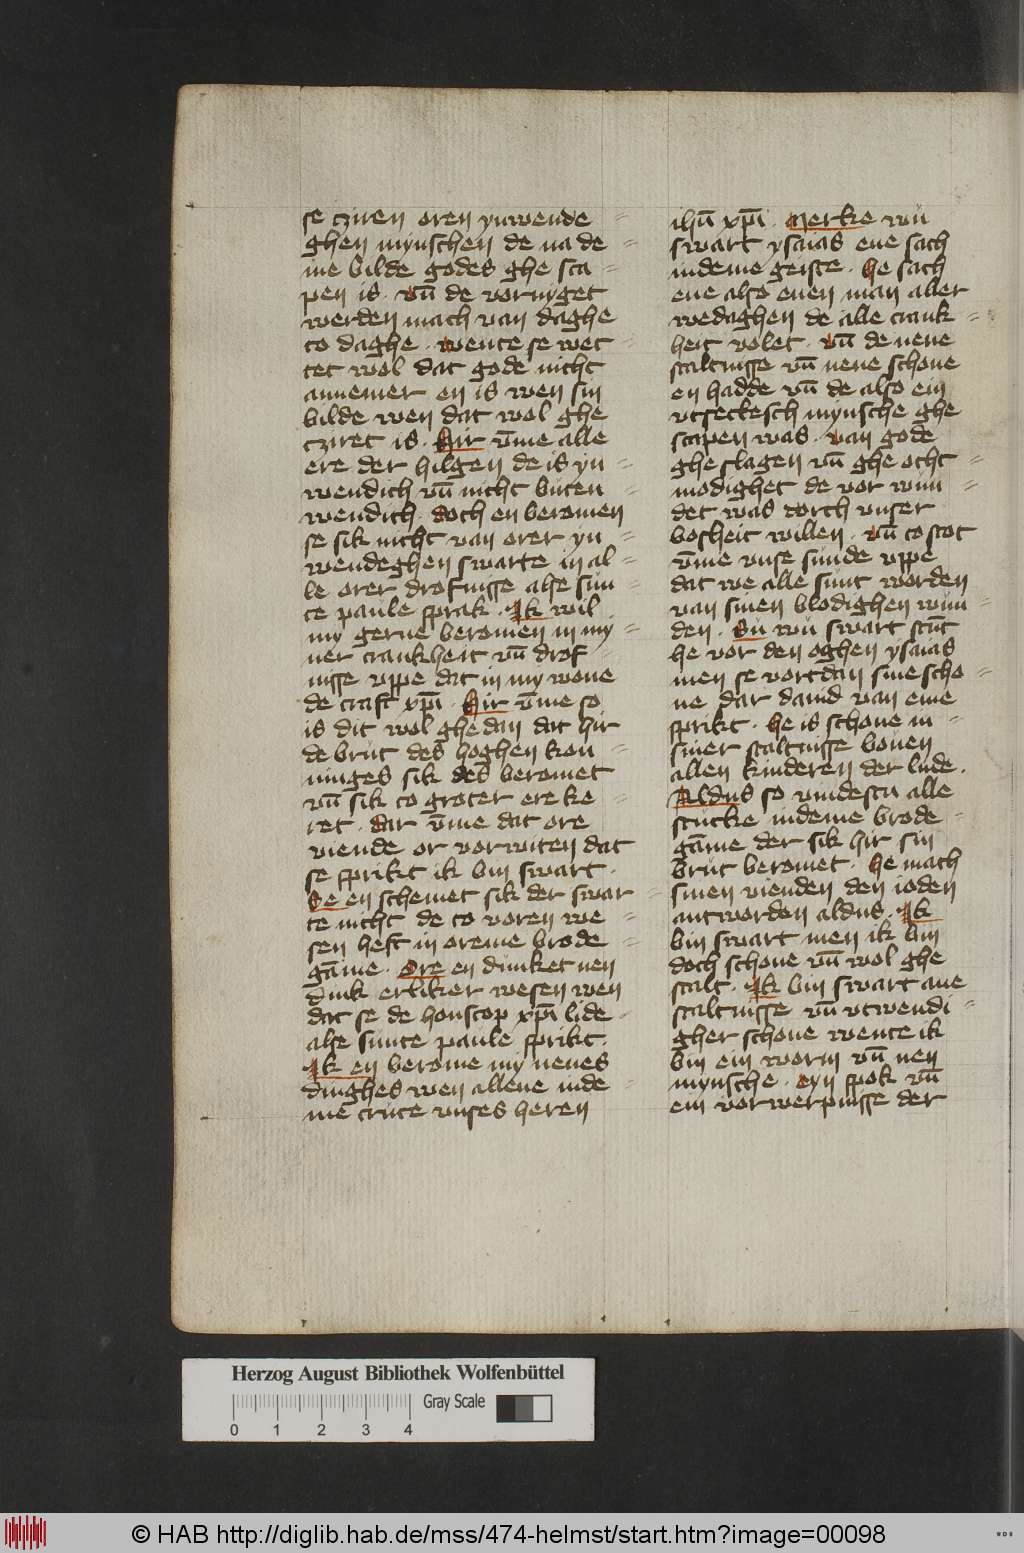 se cziren oren ynwende =
ghen mynschen de na de =
me bilde godes ghe sca =
pen is . vn̄ de vornyget
werden mach van daghe
to daghe . wente se wet =
tet wol dat gode nicht
annemer en is wen sin
bilde wen dat wol ghe
cziret is . Hir v̄me alle
ere der hilgen de is yn =
wendich vn̄ nicht buten =
wendich . doch en beromen
se sik nicht van orer yn =
wendeghen swarte in al =
le orer drofnisse alse sun =
te paule sprak . Ik wil
my gerne beromen in my =
ner crankheit vn̄ drof =
nisse vppe dat in my wone
de craft xp̄i . Hir v̄me so
is dit wol ghedan dat hir
de brut des hoghen kon =
ninges sik des beromet
vn̄ sik to groter ere ke =
ret . dar v̄me dat ore
viende or vorwiten dat
se sprikt ik bin swart .
Se en schemet sik der swar =
te nicht de to voren we =
sen heft in oreme brode =
gāme . Ore en dunket nen
dink erliker wesen wen
dat se de honscop xp̄i lide .
alse sunte paule sprikt .
Ik en berome my nenes
dinghes wen allene inde =
me cruce vnses heren
ihū xp̄i . Merke wu
swart ysaias ene sach
indeme geiste . he sach
ene also enen man aller
wedaghen de alle crank =
heit volet . vn̄ de nene
staltnisse vn̄ nene schone
en hadde vn̄ de also ein
vtsetkesch mynsche ghe
scapen was . van gode
gheslagen vn̄ ghe otht =
modighet de vor wun =
det was dorch vnser
bosheit willen . vn̄ to stot
v̄me vnse sunde vppe
dat we alle sunt worden
van sinen blodighen wun =
den . Su wu swart stūt
he vor den oghen ysaias
men se vortdan sine scho =
ne dar dauid van eme
sprikt . he is schone in =
siner staltnisse bouen
allen kinderen der lude .
Aldus so vindestu alle
stucke indeme brode =
gāme der sik hir sin
brut beromet . he mach
sinen vienden den ioden
antworden aldus . Ik
bin swart men ik bin
doch schone vn̄ wol ghe
stalt . Ik bin swart ane
staltnisse vn̄ vtwendi =
gher schone wente ik
bin ein worm vn̄ nen
mynsche . eyn spok vn̄
ein vorwerpnisse der
Herzog August Bibliothek Wolfenbüttel
Gray Scale
0 1 2 3 4
© HAB http://diglib.hab.de/mss/474-helmst/start.htm?image=00098